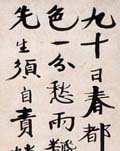 九十日春都
色一分愁雨
先生須自責